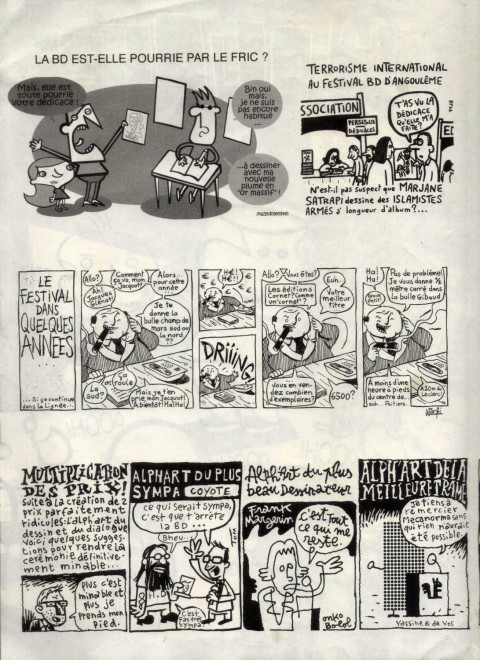 LA BD EST-ELLE POURRIE PAR LE FRIC ?
Mais, elle est
toute pourrie
votre dédicace !
Bin oui
mais,
je ne suis
pas encore
habitué
...
...à dessiner
avec ma
nouvelle
plume en
"or massif" !
TERRORISME INTERNATIONAL
AU FESTIVAL BD D'ANGOULÊME
SSOCIATION
PERSEPOLIS
DÉDICACES
T'AS VU LA
DÉDICACE
QU'ELLE M'A
FAITE?
N'est-il pas suspect que MARJANE
SATRAPI dessine des ISLAMISTES
ARMÉS à longueur d'album ?...
LE
FESTIVAL
DANS
QUELQUES
ANNÉES
... Si ça continue
dans la lignée...
Allo?
Ah,
Jacques
Glénat!
Comment
ça va, mon
Jacquot?
Alors
pour cette
année
Je te
donne la
bulle champ de
Mars sud ou
la nord
??
Le
Sud?
Ça
roule
Mais je t'en
prie mon Jacquot
A bientôt! Ha! Ha!
Hé!
Hé!
DRIIING
Allo?
Vous êtes?
Les éditions
Cornet? Comme
un "cornet"?
Euh,
Votre
meilleur
titre
Vous en ven-
dez combien
d'exemplaires?
6500?
Ha!
Ha!
Pas de problème!
Je vous donne 1/2
mètre carré dans
la bulle Gibaud
A moins d'une
heure à pieds
du centre de...
euh... Poitiers
MULTIPLICATION
DES PRIX!
Suite à la création de 2
prix parfaitement
ridicules: L'alphart du
dessin et du dialogue
Voici quelques sugges-
tions pour rendre la
cérémonie définitive-
ment minable...
Plus c'est
minable et
plus je
prends mon
pied.
ALPHART DU PLUS
SYMPA
COYOTE
ce qui serait sympa,
c'est que t'arrête
la BD...
Bheu...
C'est
pas très
sympa
Alph'art du plus
beau Dessinateur
Frank
Margerin
C'est tout
ce qui me
reste
ALPH'ART DE LA
MEILLEURE TRAME
Je tiens à
remercier
mecanorma sans
qui rien n'aurait
été possible.
Yassine & de Vos